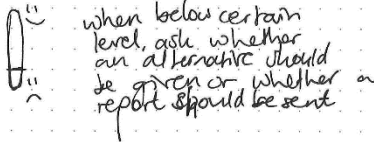 when below certain
level, ask whether
an alternative should
be given or whether a
report should be sent